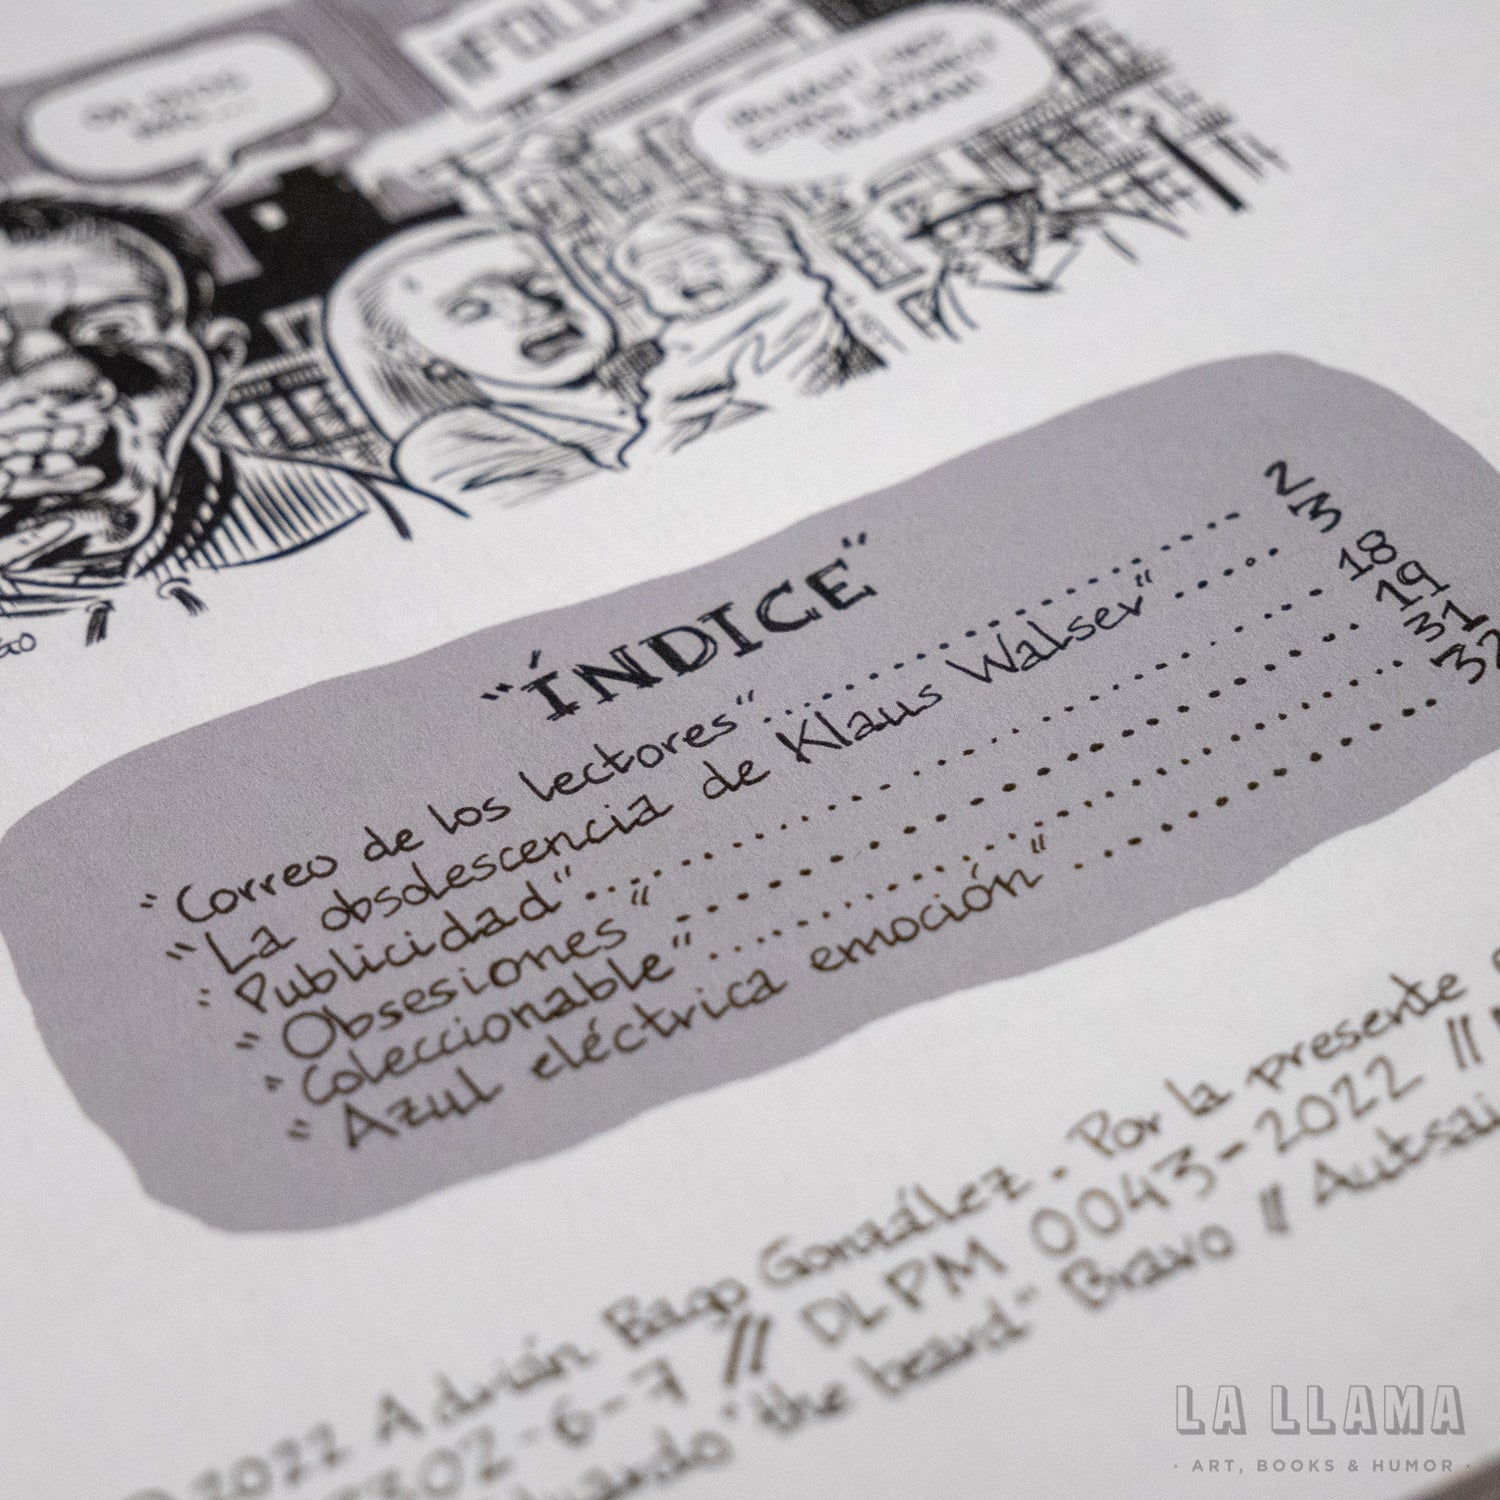 "ÍNDICE"
"Correo de los lectores".................... 2
"La obsolescencia de Klaus Walser"..... 3
"Publicidad".................... 18
"Obsesiones".................... 19
"Coleccionable".................... 31
"Azul eléctrica emoción".................... 32
2022 Adrián Bago González. Por la presente
302-6-7 // DLPM 0043-2022 //
"the beard" Bravo //
LA LLAMA
· ART, BOOKS & HUMOR ·